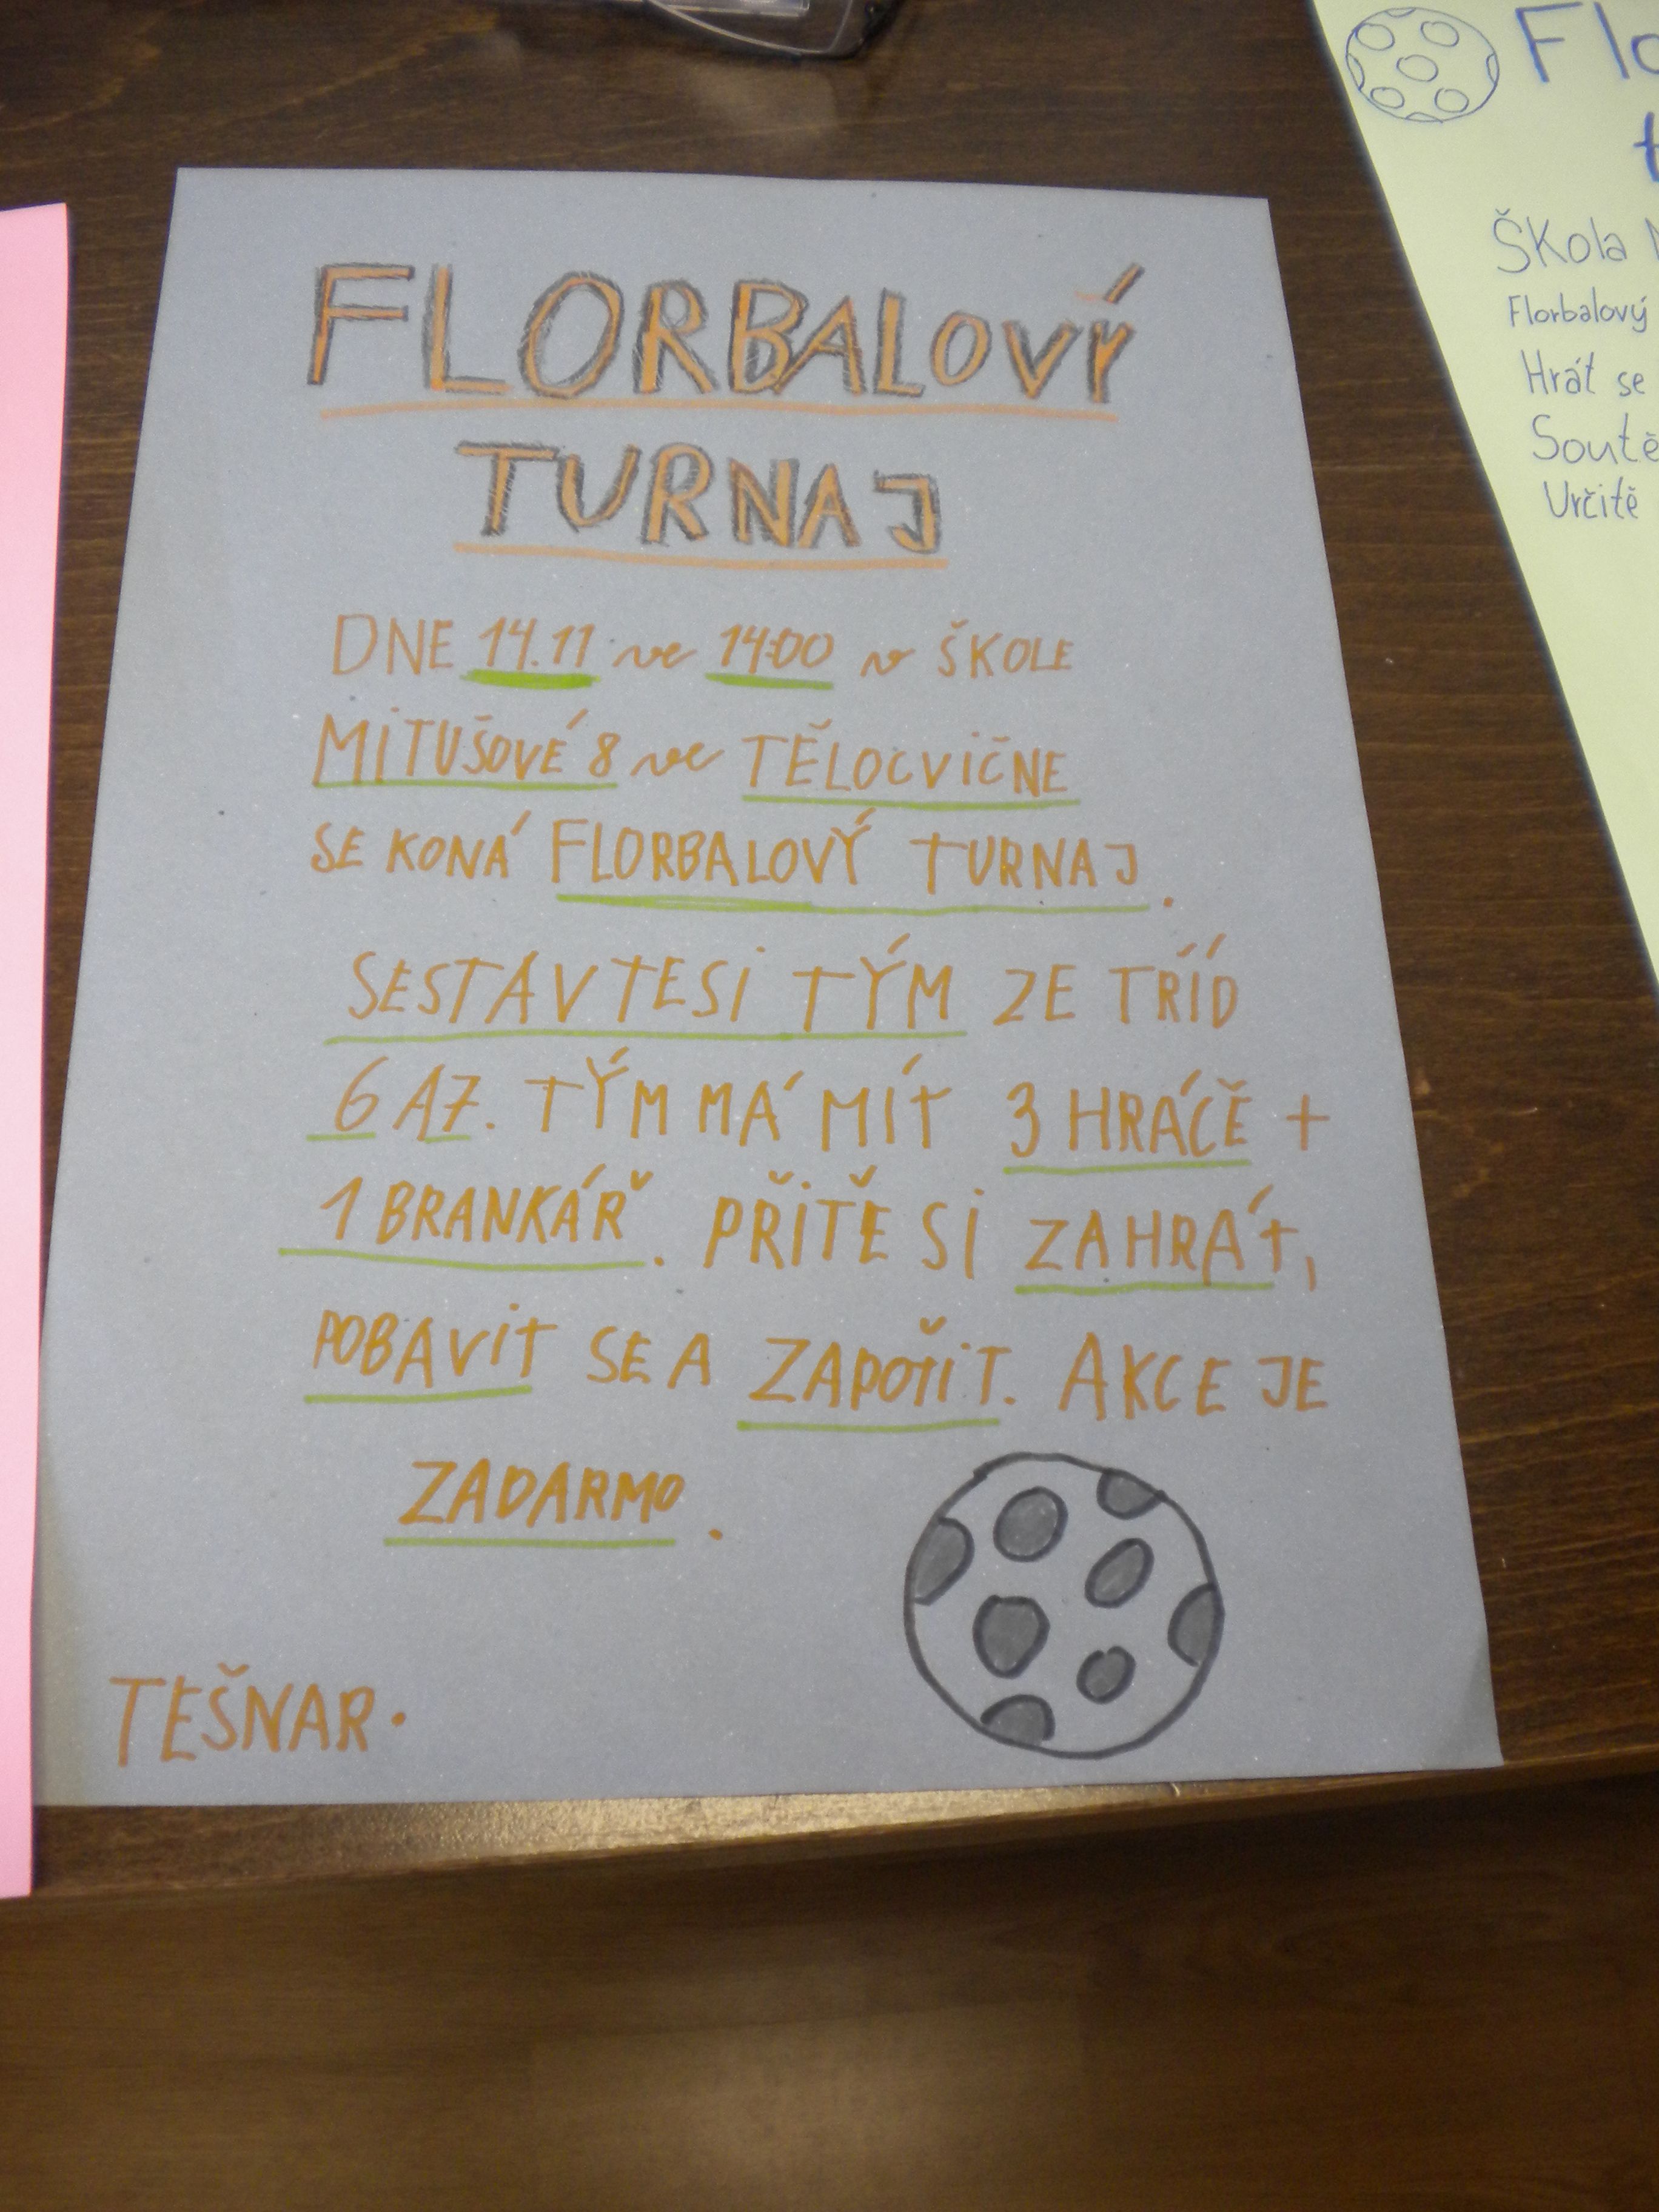 FLORBALOVÝ
TURNAJ
DNE 14.11 ve 14:00 v ŠKOLE
MiTUŠOVÉ 8 ve TĚLOCViČNE
SE KONÁ FLORBALOVÝ TURNAJ.
SESTAVTESi TÝM ZE TŘÍD
6 A7. TÝM MÁ MÍT 3 HRÁČĚ +
1 BRANKÁŘ. PŘiTĚ Si ZAHRÁT,
POBAViT SE A ZAPOTiT. AKCE JE
ZADARMO.
TEŠNAR.
Flo
t
ŠKola
Florbalový
Hrát se
Soutě
Určitě